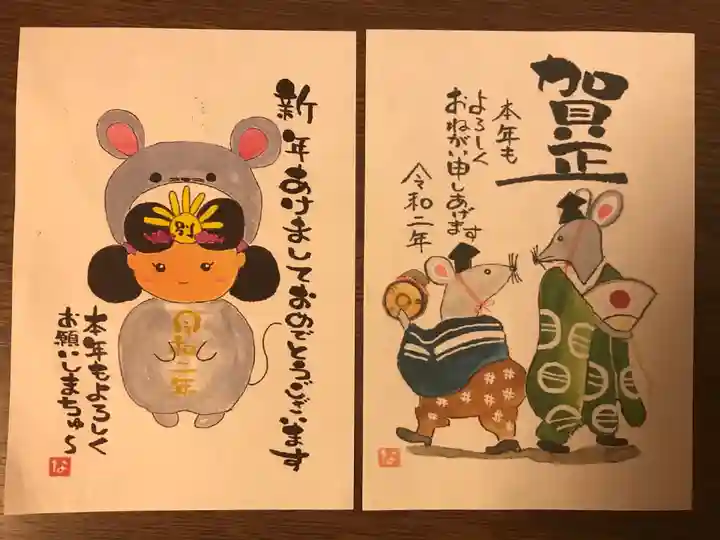 新年あけましておめでとうございます
令和二年
本年もよろしく
お願いしまちゅ〜
な
賀正
本年も
よろしく
おねがい申しあげます
令和二年
な